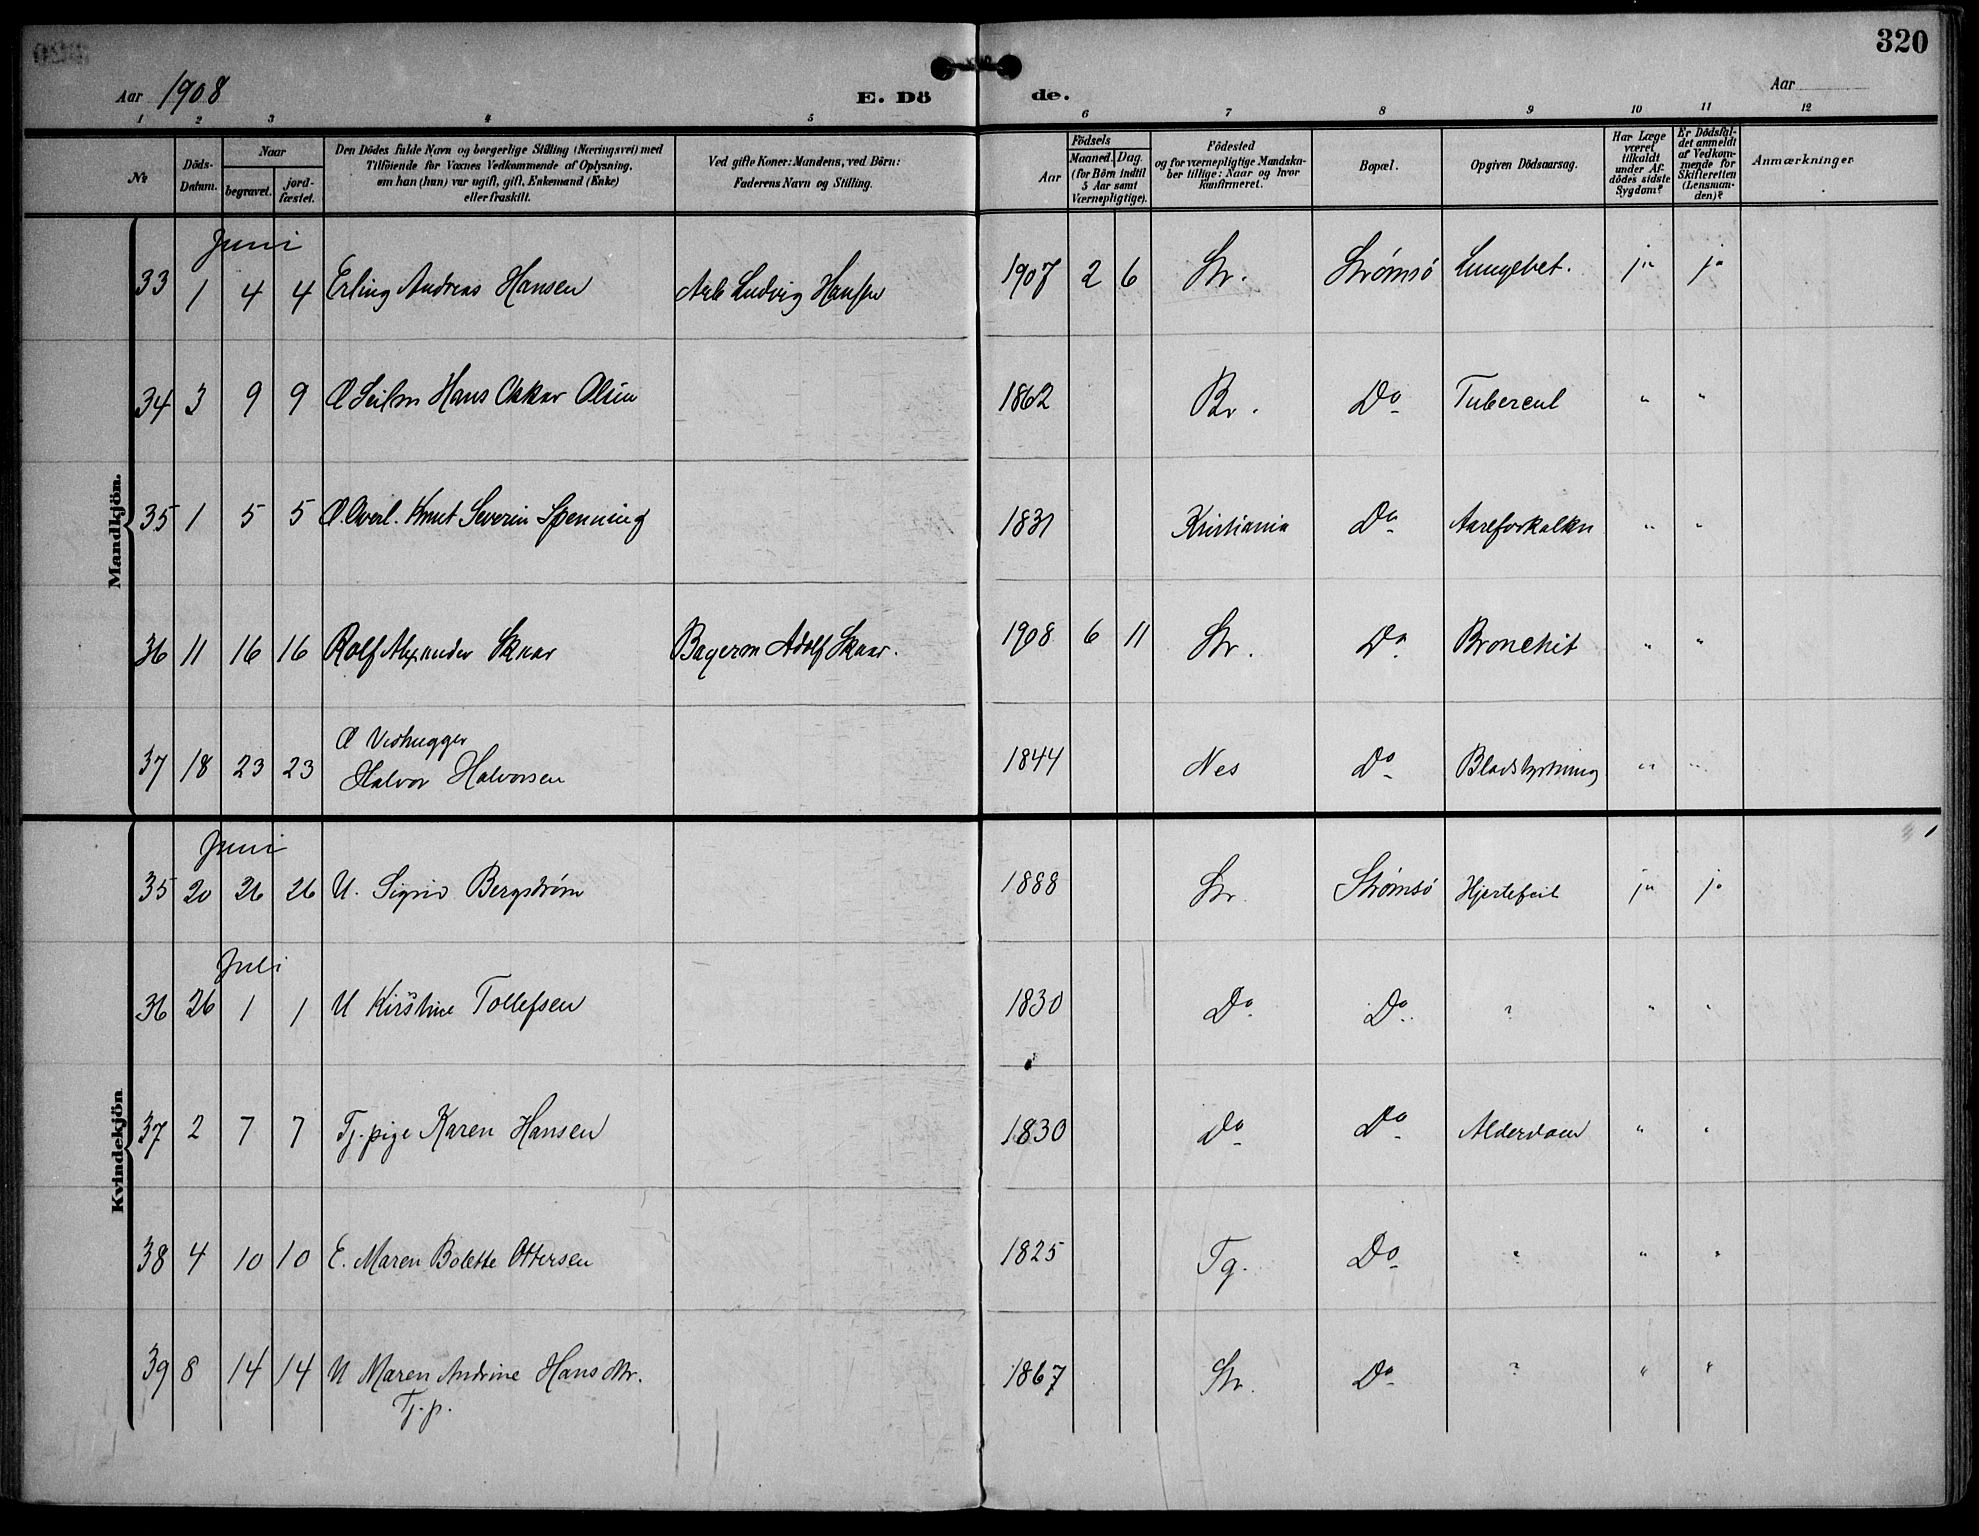 320
Aar 1908
E. Dö
de.
Aar
1 2 3 4 5 6 7 8 9 10 11 12
№
Döds-
Datum.
Naar
begravet.
jord-
fæstet.
Den Dödes fulde Navn og borgerlige Stilling (Næringsvei) med
Tilföiende for Voxnes Vedkommende af Oplysning,
om han (hun) var ugift, gift, Enkemand (Enke)
eller fraskilt.
Ved gifte Koner: Mandens, ved Börn:
Faderens Navn og Stilling.
Födsels
Aar
Maaned.
Dag.
(for Börn indtil
5 Aar samt
Værnepligtige).
Födested
og for værnepligtige Mandska-
ber tillige: Naar og hvor
konfirmeret.
Bopæl.
Opgiven Dödsaarsag.
Har Læge
været
tilkaldt
under Af-
dödes sidste
Sygdom?
Er Dödsfal-
det anmeldt
af Vedkom-
mende for
Skifteretten
(Lensman-
den)?
Anmærkninger
Mandkjön.
Juni
33 1 4 4 Erling Andreas Hansen Arb Ludvig Hansen 1907 2 6 Str. Strømsø Lungebet. ja ja
34 3 9 9 Æ Hans Oskar Olsen 1862 Br. Do Tubercul " "
35 1 5 5 Æ. Overl. Knut Severin Spenning 1831 Kristiania Do Aareforkalkn " "
36 11 16 16 Rolf Alexander Skaar Bagerm Adolf Skaar. 1908 6 11 Str. Do Bronchit " "
37 18 23 23 Æ Vedhugger
Halvor Halvorsen 1844 Nes Do Blodstyrtning " "
Kvindekjön
Juni
35 20 26 26 U. Sigrid Bergstrøm 1888 Str. Strømsø Hjertefeil ja ja
Juli
36 26 1 1 U Kirstine Tollefsen 1830 Do Do. ? " "
37 2 7 7 Tj. pige Karen Hansen 1830 Do Do Alderdom " "
38 4 10 10 E. Maren Bolette Ottersen 1825 Tg. Do " " "
39 8 14 14 U Maren Andrine Hansdtr.
Tj. p. 1867 Str. Do ? " "